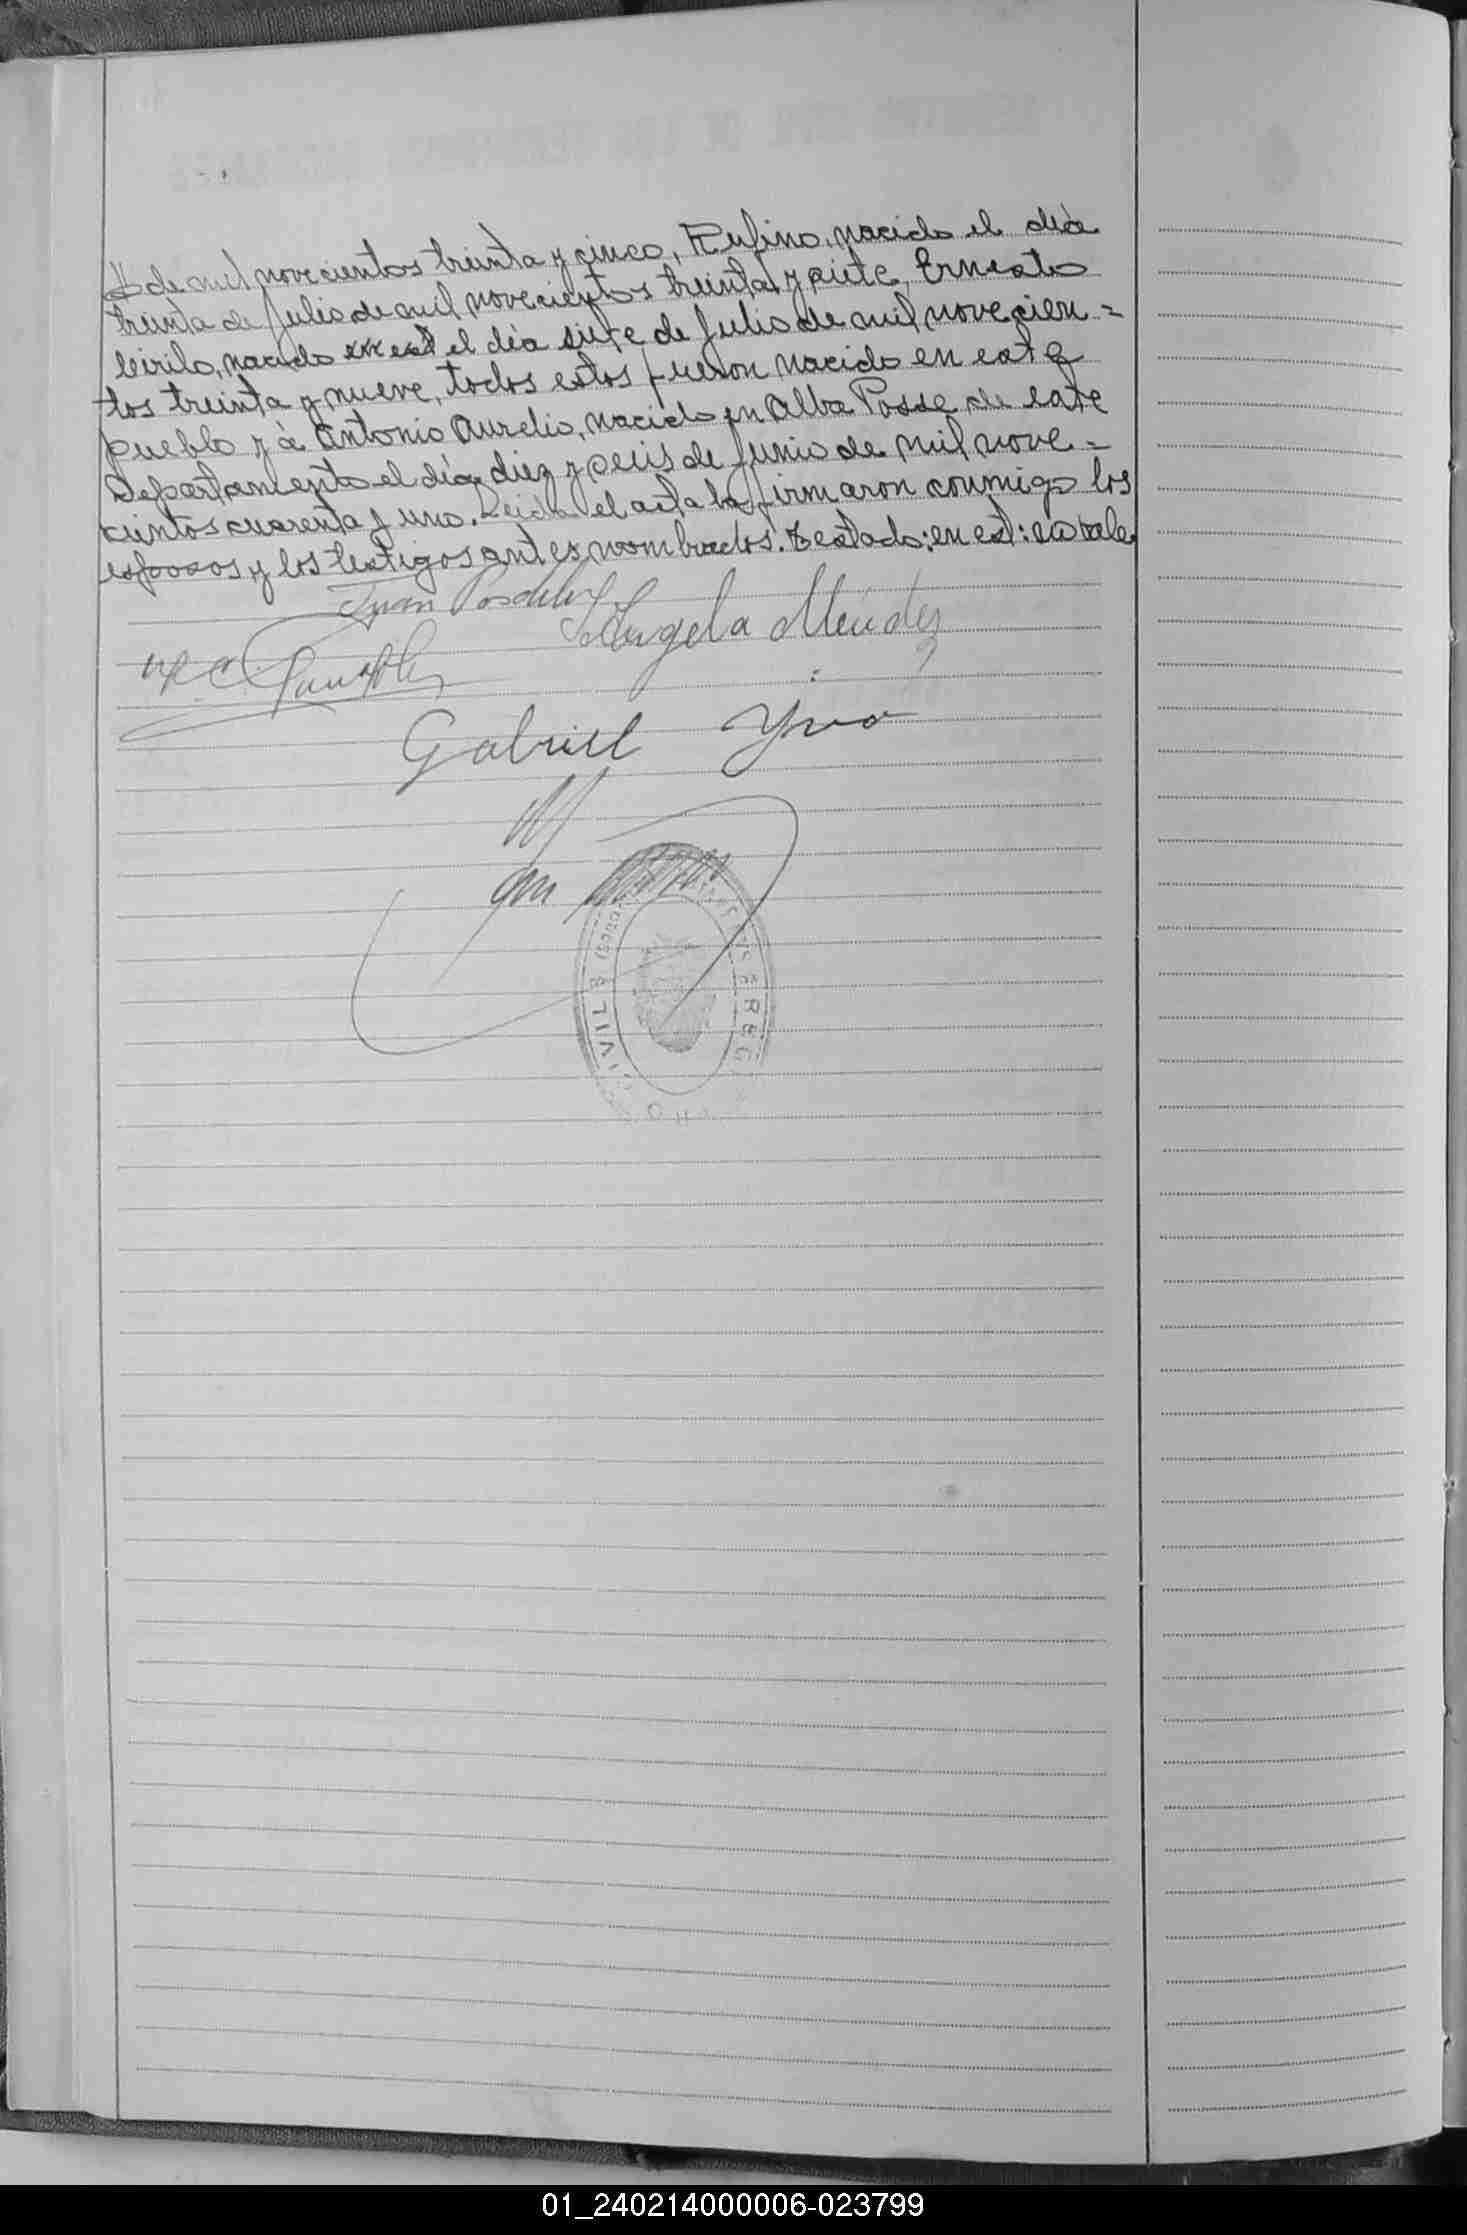 de mil novecientos treinta y cinco, Rufino, nacido el dia
treinta de Julio de mil novecientos treinta y siete, Ernesto
Cirilo, nacido en est el dia siete de Julio de mil novecien=
tos treinta y nueve, todos estos fueron nacido en este
pueblo y à Antonio Aurelio, nacido en Alba Posse de este
Departamento el día diez y seis de Junio de mil nove=
cientos cuarenta y uno. Leida el acta la firmaron conmigo los
esposos y los testigos antes nombrados. Testado: en est: no vale
Juan
Angela Mendez
Gabriel
CIVIL
01_240214000006-023799